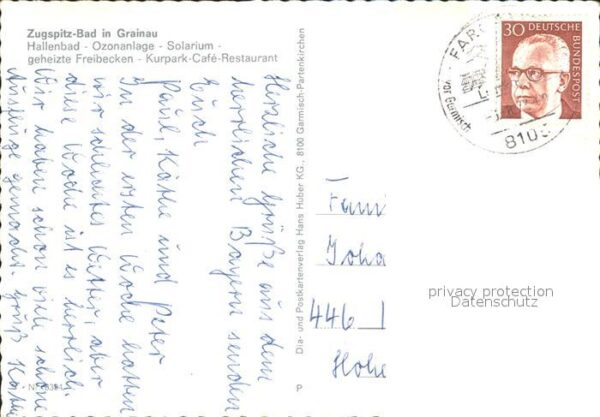 Zugspitz-Bad in Grainau
Hallenbad - Ozonanlage - Solarium -
geheizte Freibecken - Kurpark-Café-Restaurant
Herzliche Grüße aus dem
herrlichen Bayern senden
Euch
Paul, Käthe und Peter
In der ersten Woche hatten
wir schlechtes Wetter, aber
diese Woche ist es herrlich.
Wir haben schon viele schöne
Ausflüge gemacht. Gruß Käthe
Dia- und Postkartenverlag Hans Huber KG., 8100 Garmisch-Partenkirchen
30 DEUTSCHE
BUNDESPOST
8105
Garmisch
Fami
Joha
446
Hohe
privacy protection
Datenschutz
P